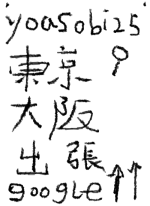 yoasobi25
東京
大阪
出張
google↑↑